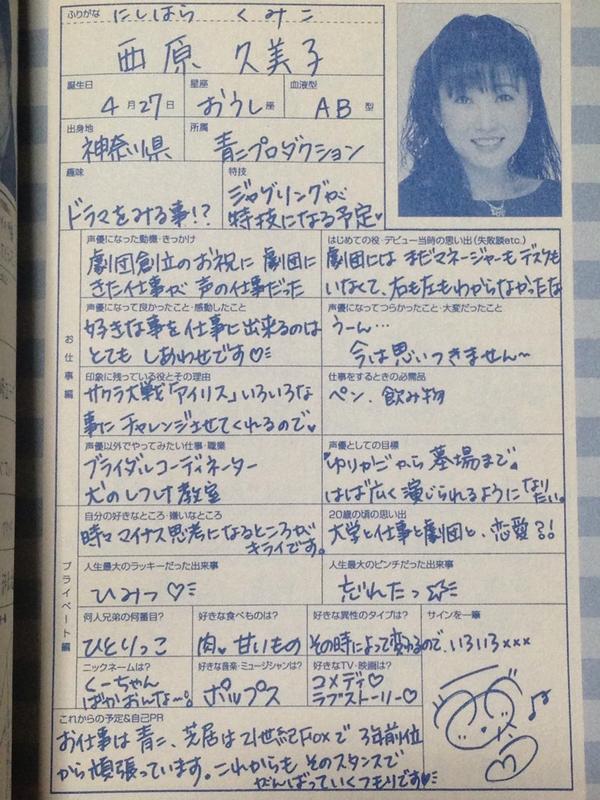 ふりがな にしはら くみこ
西原 久美子
誕生日 星座 血液型
4月27日 おうし座 AB型
出身地 所属
神奈川県 青二プロダクション
趣味 特技
ドラマをみる事!? ジャグリングが
特技になる予定♥
お仕事編
声優になった動機・きっかけ
劇団創立のお祝に 劇団に
きた仕事が 声の仕事だった
はじめての役・デビュー当時の思い出(失敗談etc.)
劇団には まだマネージャーもデスクも
いなくて、右も左もわからなかったな
声優になって良かったこと・感動したこと
好きな事を仕事に出来るのは
とても しあわせです♡
声優になってつらかったこと・大変だったこと
うーん…
今は思いつきません〜
印象に残っている役とその理由
サクラ大戦「アイリス」いろいろな
事に チャレンジさせてくれるので♥
仕事をするときの必需品
ペン、飲み物
声優以外でやってみたい仕事・職業
ブライダルコーディネーター
犬のしつけ教室
声優としての目標
ゆりかごから 墓場まで
はば広く演じられるようになりたい。
プライベート編
自分の好きなところ・嫌いなところ
時々マイナス思考になるところが
キライです。
20歳の頃の思い出
大学と仕事と劇団と、恋愛?!
人生最大のラッキーだった出来事
ひみつ♡
人生最大のピンチだった出来事
忘れたっ
何人兄弟の何番目?
ひとりっこ
好きな食べものは?
肉♥甘いもの
好きな異性のタイプは?
その時によって変わるので、いろいろ×××
サインを一筆
ニックネームは?
くーちゃん
ばかおんな〜。
好きな音楽・ミュージシャンは?
ポップス
好きなTV・映画は?
コメディ♡
ラブストーリー♡
これからの予定&自己PR
お仕事は青二、芝居は21世紀FOXで 3年前位
から頑張っています。これからも そのスタンスで
がんばっていくつもりです♥